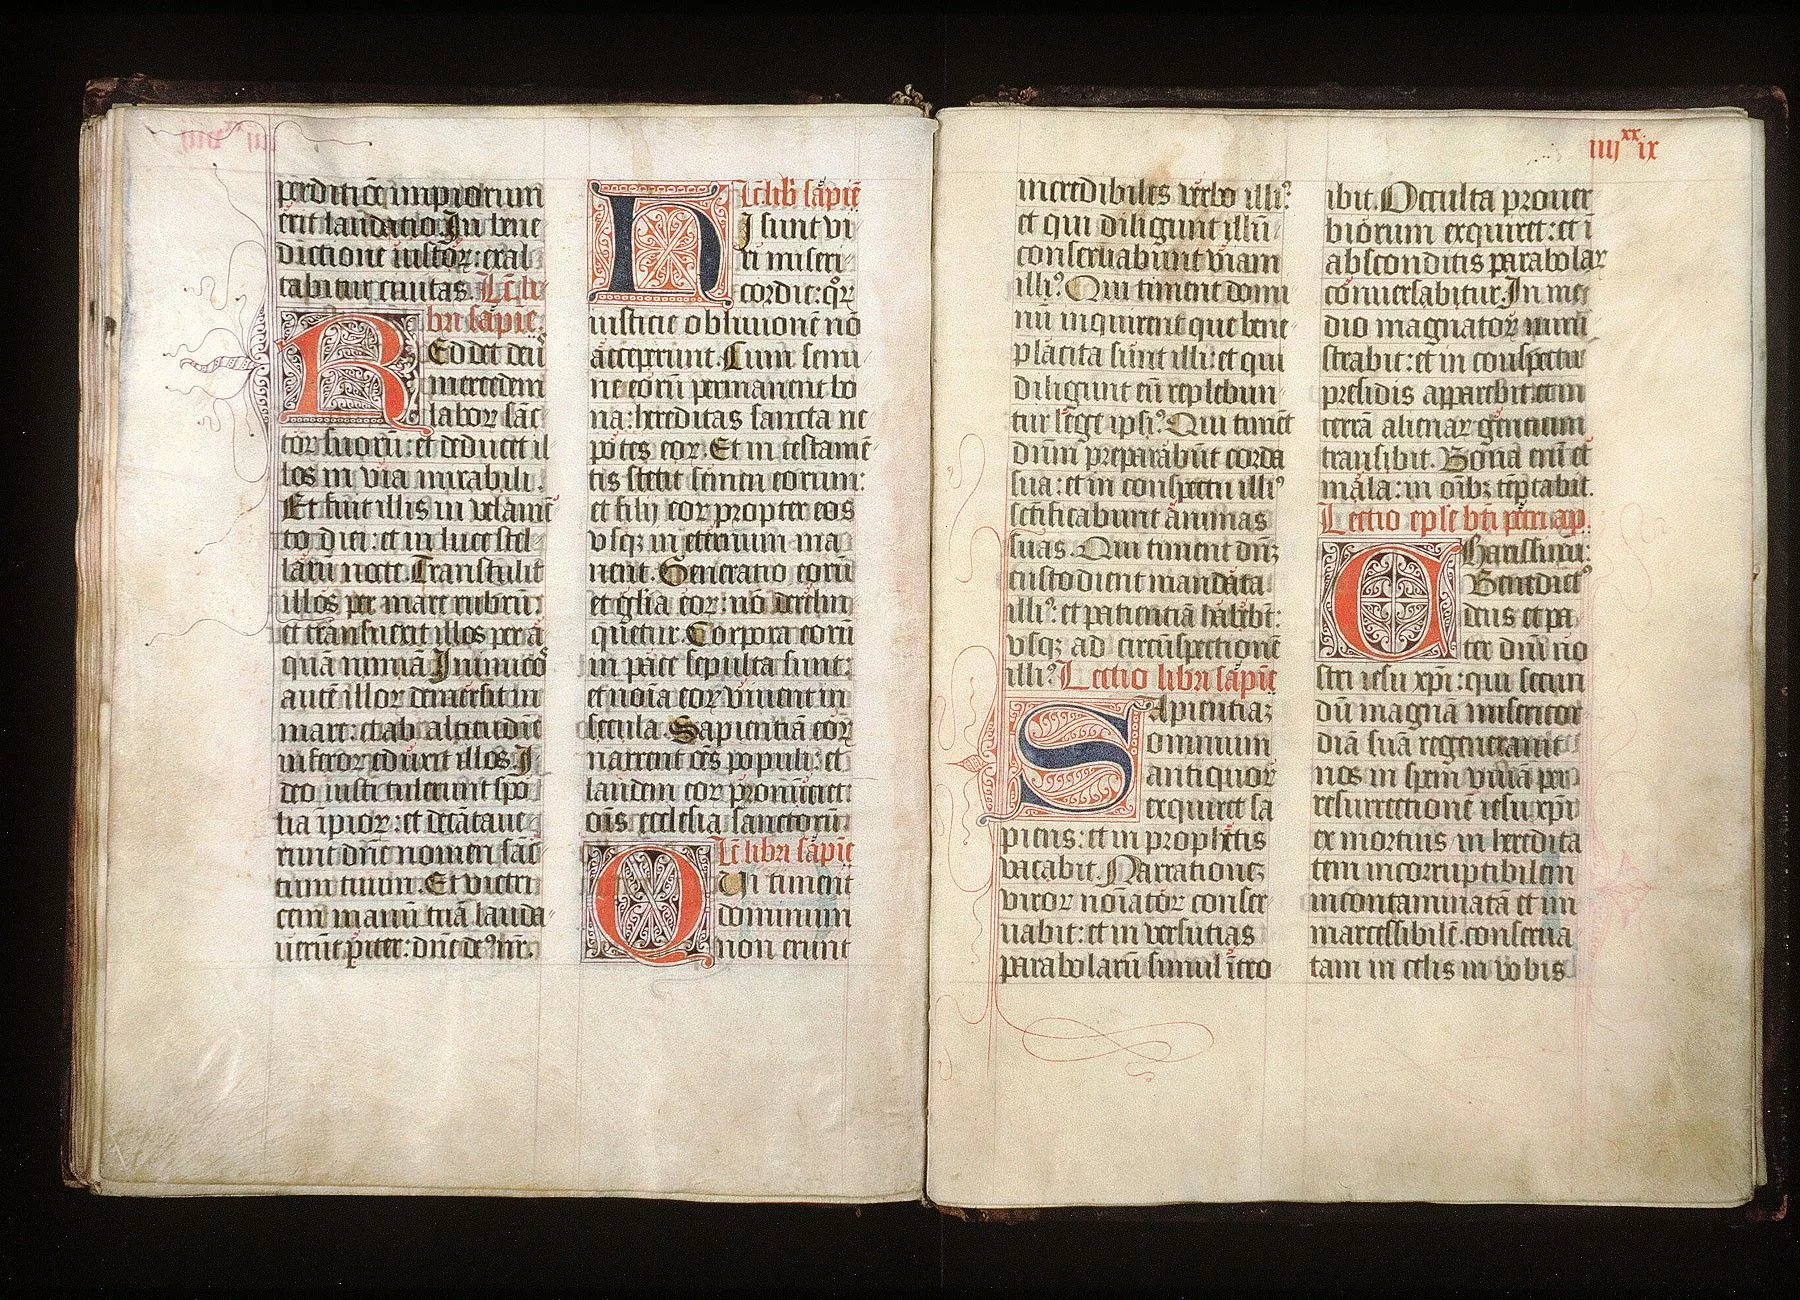 perditiōe impiorum
erit laudatio. In bene
dictione iustoꝝ: exal
tabitur ciuitas. Lc̄ li-
bri sapīe.
REddet deꝰ
mercedem
labor sāc
toꝝ suoꝝ: et deducet il
los in via mirabili.
Et fuit illis in velamē
to diei: et in luce stel-
laꝝ nocte. Transtulit
illos per mare rubrū:
et transuexit illos per a
quā nimiā. Inimicos
autē illoꝝ demersit in
mare: et ab altitudīe
inferoꝝ eduxit illos. I
deo iusti tulerunt spo
lia ipioꝝ: et decātaue-
runt dn̄e nomen sāc-
tum tuum. Et victri
cem manū tuā lauda-
uerūt pīter: dn̄e deꝰ nr̄.
Lc̄ lib sapīe
HI sunt vi
ri miseri-
cordie: qꝝ
iusticie obliuionē nō
acceperunt. Cum semi-
ne eoꝝ permanent bo
na: hereditas sancta ne-
potes eoꝝ. Et in testamē-
tis stetit semen eorum:
et filij eoꝝ propter eos
vsqꝫ in eternum ma
nent. Generatio eoꝝ
et gl̄ia eoꝝ: nō derelin
quetur. Corpora eoꝝ
in pace sepulta sunt:
et noīa eoꝝ viuent in
secula. Sapientiā eoꝝ
narrent oēs populi: et
laudem eoꝝ pronūciet
oīs ecclesia sanctoꝝ.
Lc̄ libri sapīe
QUi timent
dominum
non erunt
iiijˣˣix
incredibiles verbo illiꝰ
et qui diligunt illū
conseruabunt viam
illiꝰ. Qui timent domi
nū inquirent que bene-
placita sunt illi: et qui
diligunt eū replebun-
tur lege ipsiꝰ. Qui timēt
dn̄m preparabūt corda
sua: et in conspectu illiꝰ
sc̄ificabunt animas
suas. Qui timent dn̄ꝫ
custodient mandata
illiꝰ: et patienciā habebt̄:
vsqꝫ ad circūspectionē
illiꝰ. Lectio libri sapīe
SApientiaꝫ
omnium
antiquoꝝ
exquiret sa
piens: et in prophetis
vacabit. Narrationeꝫ
viroꝝ noīatoꝝ conser-
uabit: et in versutias
parabolarū simul ītro
ibit. Occulta prouer
biorum exquiret: et ī
absconditis parabolaꝝ
conuersabitur. In me
dio magnatoꝝ mini
strabit: et in conspectu
presidis apparebit: etenim
terrā alienaꝝ gentium
transibit. Bona enī et
mala: in oībꝫ teptabit.
Lectio ep̄le bt̄i petri ap.
CHarissimi:
Benedictꝰ
deus et pa
ter dn̄i no
stri iesu xp̄i: qui secun
dū magnā misericor
diā suā regenerauit
nos in spem viuā per
resurrectionē iesu xp̄i
ex mortuis in heredita
tem incorruptibilem
incontaminatā et im
marcessibilē. conserua
tam in celis in vobis